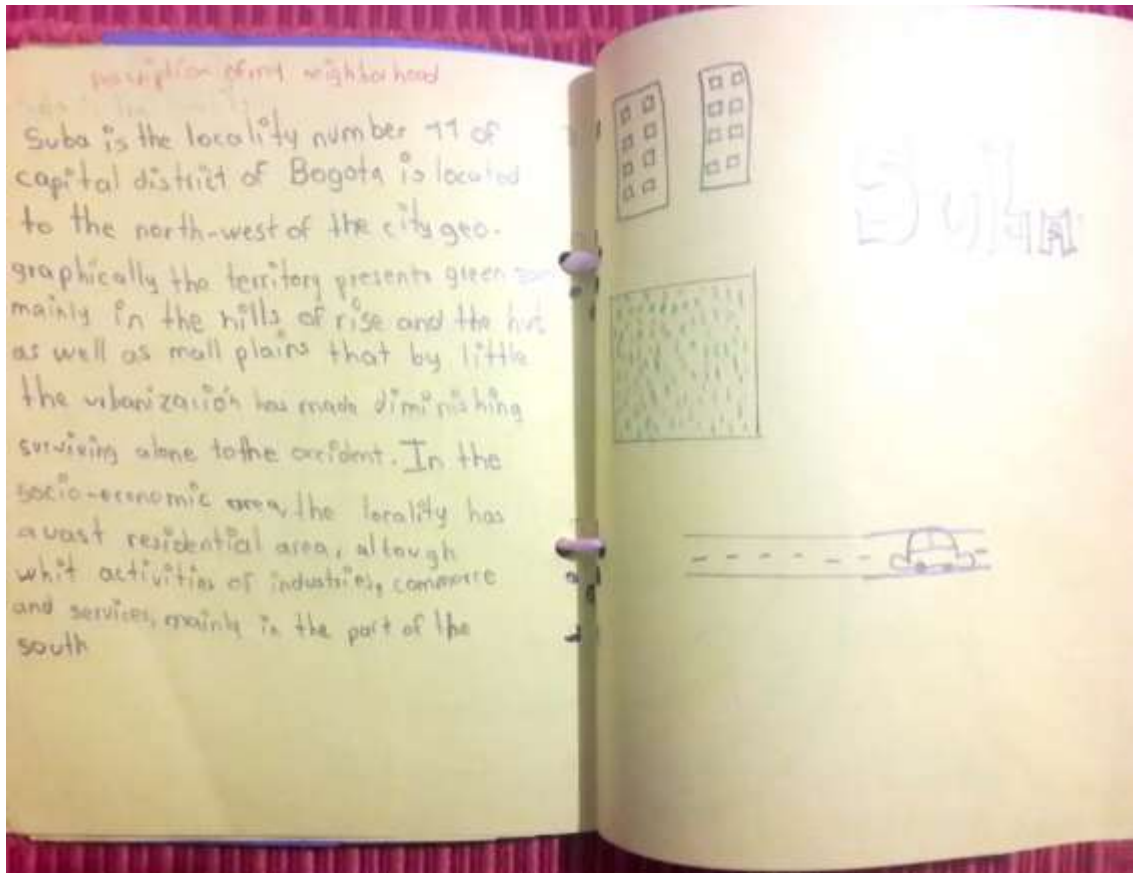 Description of my neighborhood
Suba is the locality number 11 of
capital district of Bogota is located
to the north-west of the city geo-
graphically the territory presents green
mainly in the hills of rise and the hut
as well as mall plains that by little
the urbanización has made diminishing
surviving alone to the occident. In the
socio-economic area, the locality has
a vast residential area, altough
whit activities of industries, commerce
and services, mainly in the part of the
south
SubA